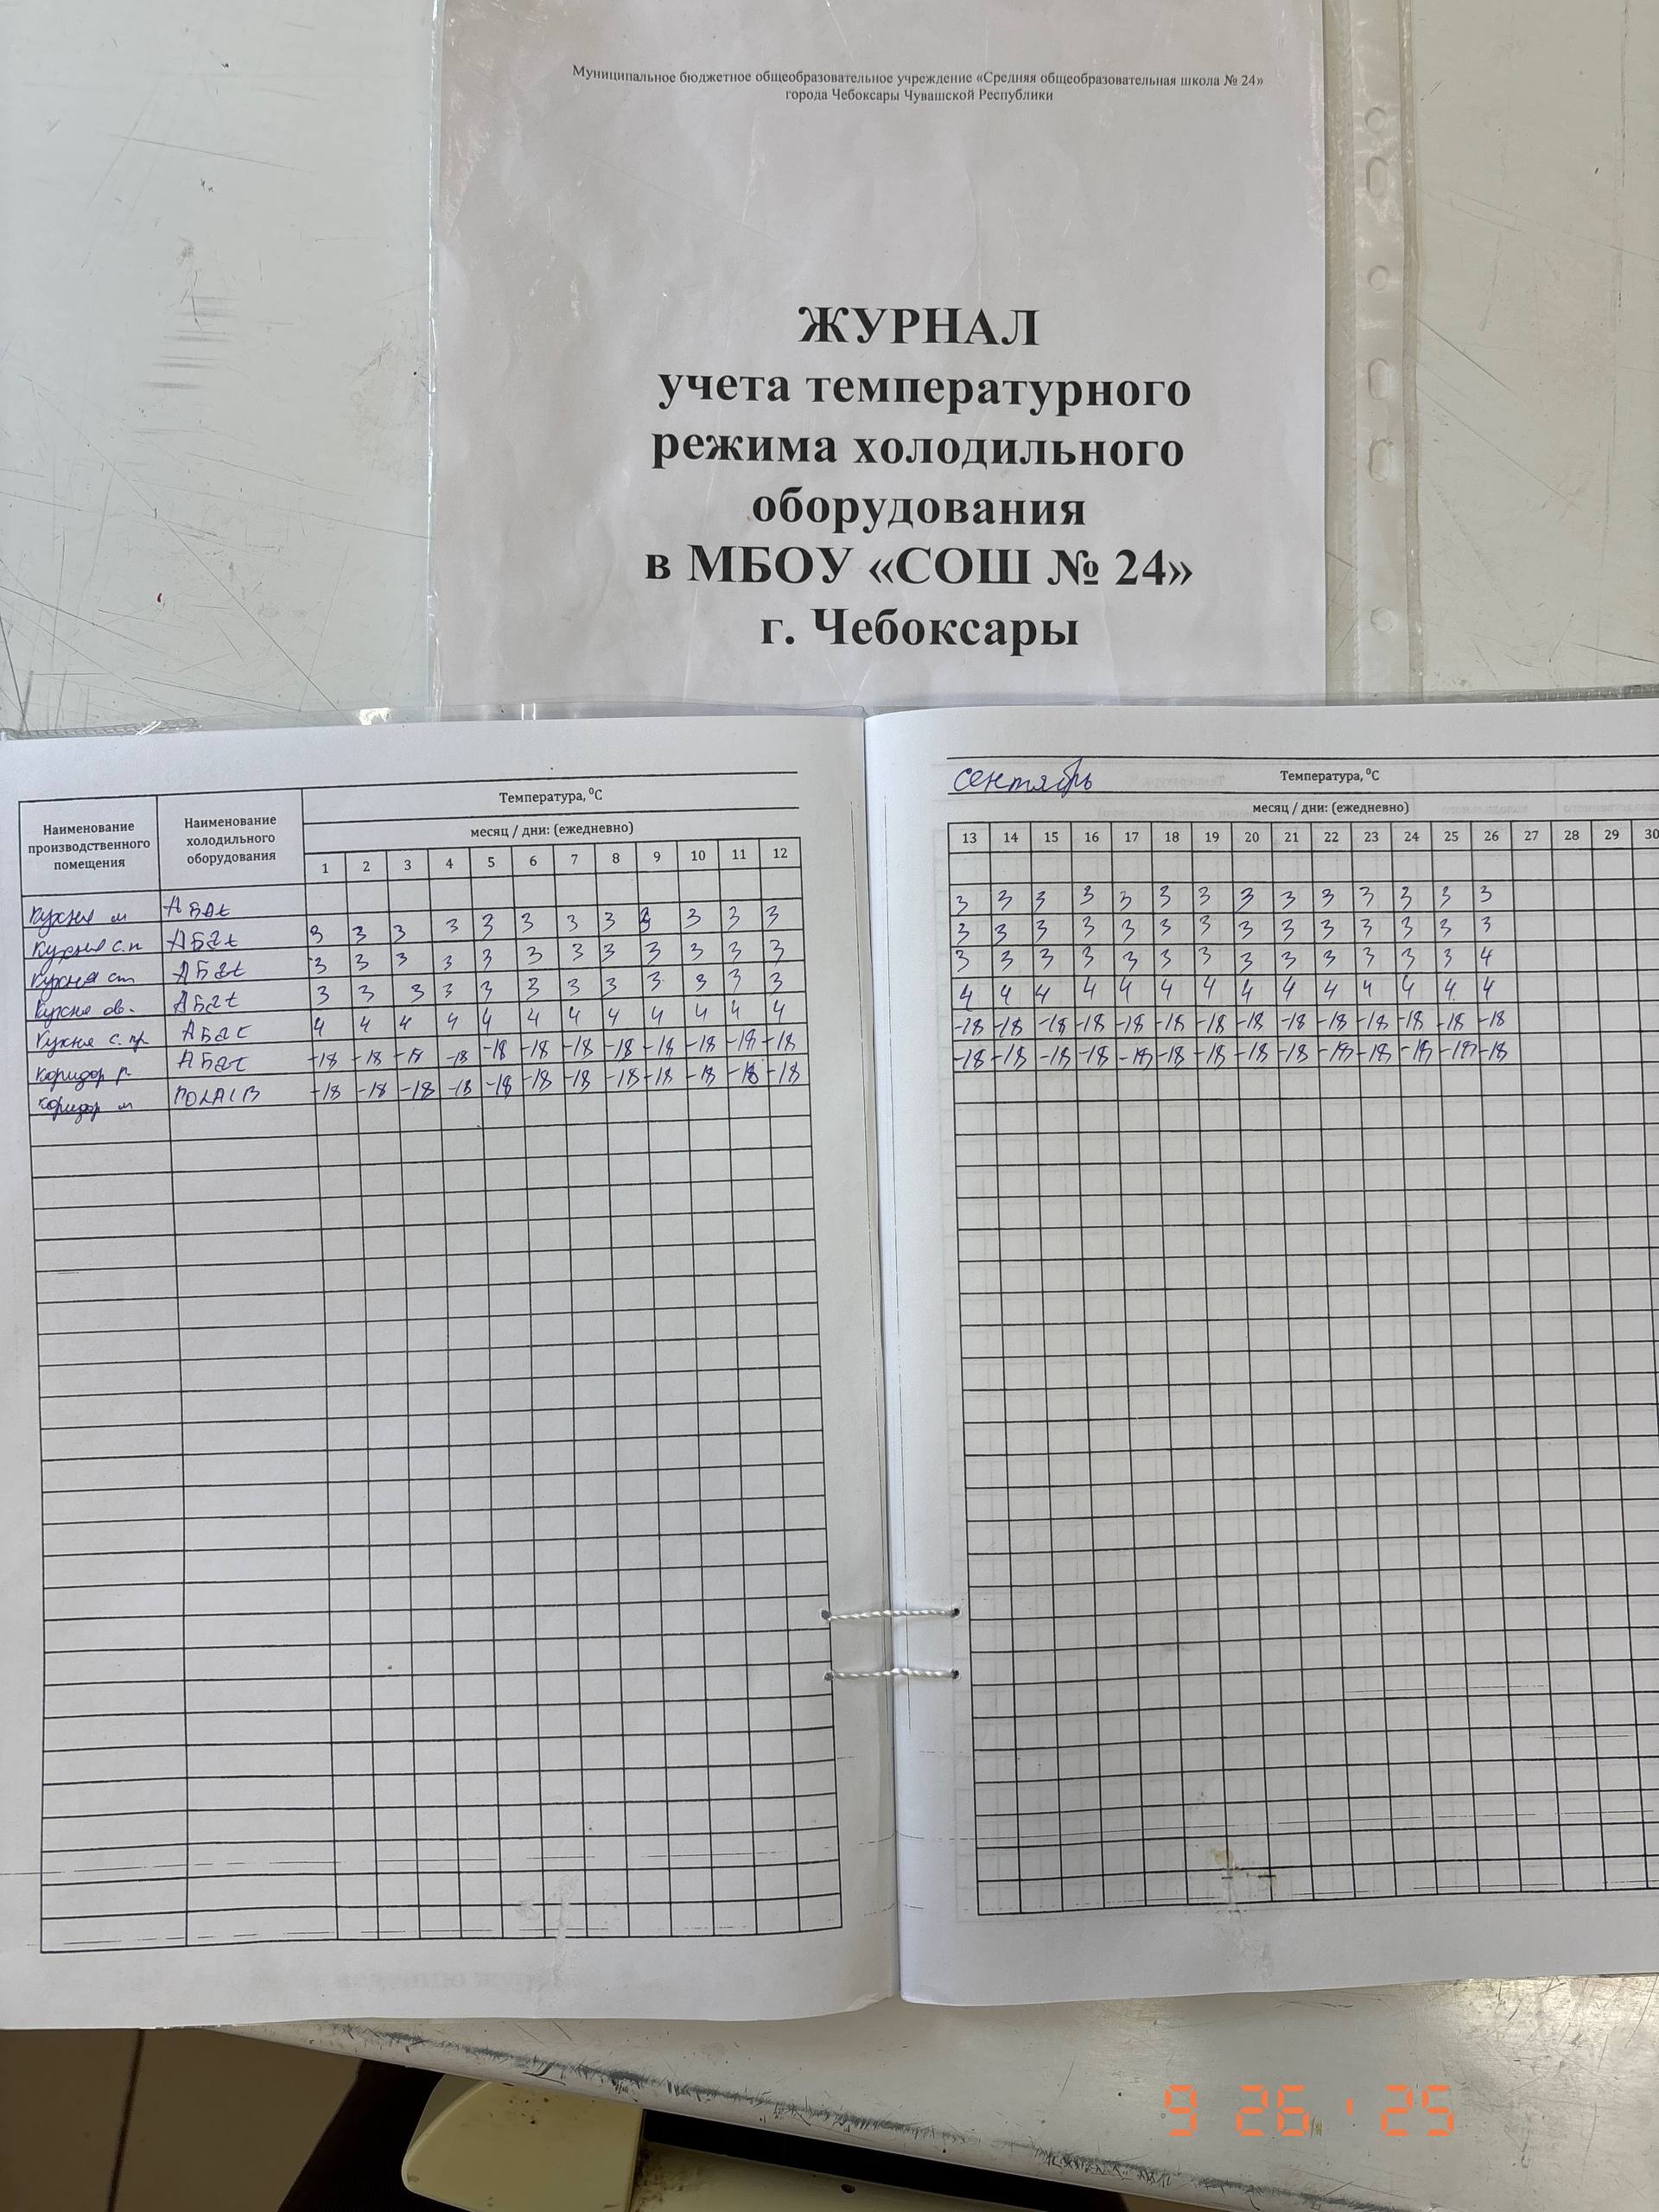 Муниципальное бюджетное общеобразовательное учреждение «Средняя общеобразовательная школа № 24»
города Чебоксары Чувашской Республики
ЖУРНАЛ
учета температурного
режима холодильного
оборудования
в МБОУ «СОШ № 24»
г. Чебоксары
Наименование
производственного
помещения
Наименование
холодильного
оборудования
Температура, ⁰С
месяц / дни: (ежедневно)
1 2 3 4 5 6 7 8 9 10 11 12
Кухня м Абат
Кухня с.п Абат 3 3 3 3 3 3 3 3 3 3 3
Кухня ст Абат 3 3 3 3 3 3 3 3 3 3 3 3
Кухня ов. Абат 3 3 3 3 3 3 3 3 3 3 3 3
Кухня с. пр Абат 4 4 4 4 4 4 4 4 4 4 4 4
Коридор р Абат -18 -18 -18 -18 -18 -18 -18 -18 -18 -18 -18 -18
Коридор м POLAIR -18 -18 -18 -18 -18 -18 -18 -18 -18 -18 -18 -18
сентябрь Температура, ⁰С
месяц / дни: (ежедневно)
13 14 15 16 17 18 19 20 21 22 23 24 25 26 27 28 29 30
3 3 3 3 3 3 3 3 3 3 3 3 3 3
3 3 3 3 3 3 3 3 3 3 3 3 3 3
3 3 3 3 3 3 3 3 3 3 3 3 3 4
4 4 4 4 4 4 4 4 4 4 4 4 4 4
-18 -18 -18 -18 -18 -18 -18 -18 -18 -18 -18 -18 -18 -18
-18 -18 -18 -18 -18 -18 -18 -18 -18 -18 -18 -18 -18 -18
9 26 ' 25